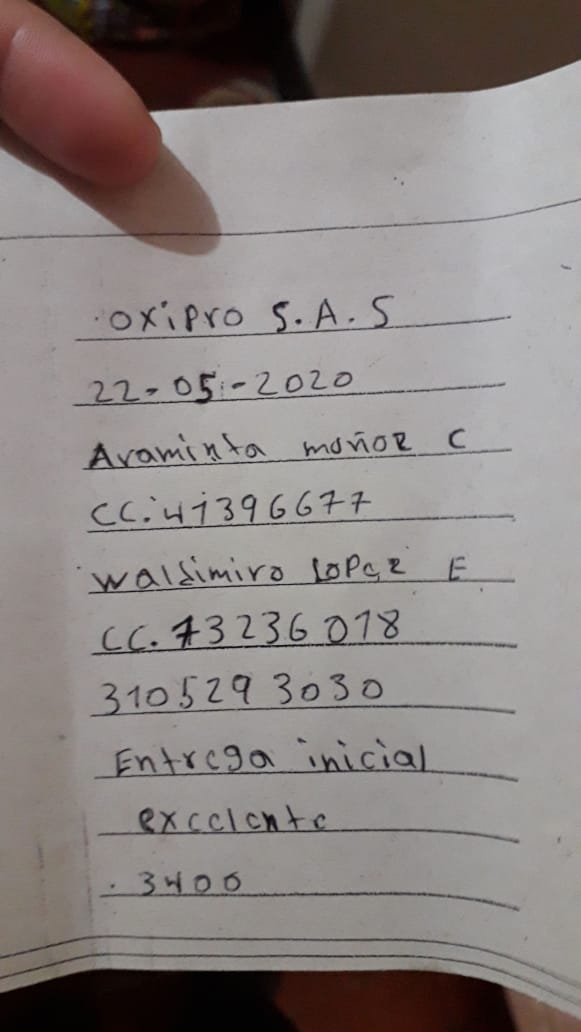 oxipro S.A.S
22-05-2020
Araminta moñoz C
CC. 41396677
Waldimiro Lopez E
CC. 73236018
3105293030
Entrega inicial
excelente
. 3400